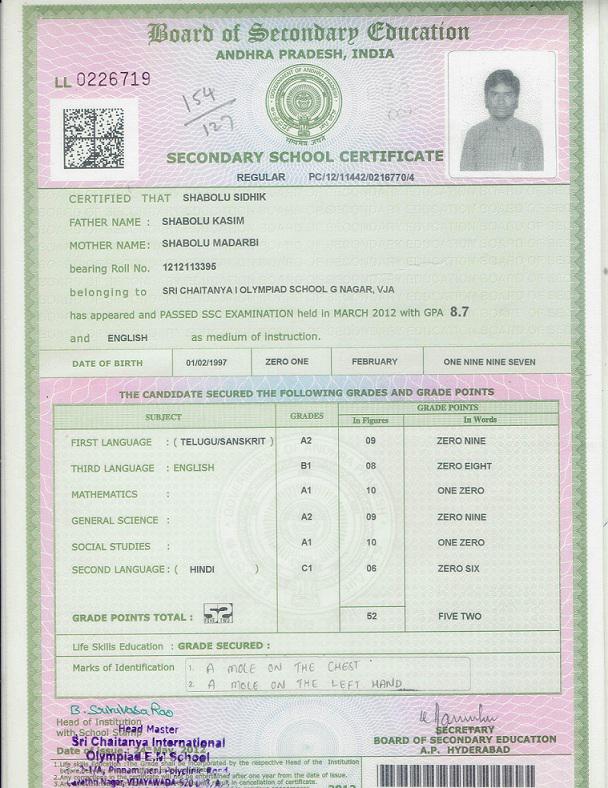 Board of Secondary Education
ANDHRA PRADESH, INDIA
LL 0226719
154
127
SECONDARY SCHOOL CERTIFICATE
REGULAR PC/12/11442/0216770/4
CERTIFIED THAT SHABOLU SIDHIK
FATHER NAME : SHABOLU KASIM
MOTHER NAME: SHABOLU MADARBI
bearing Roll No. 1212113395
belonging to SRI CHAITANYA I OLYMPIAD SCHOOL G NAGAR, VJA
has appeared and PASSED SSC EXAMINATION held in MARCH 2012 with GPA 8.7
and ENGLISH as medium of instruction.
DATE OF BIRTH 01/02/1997 ZERO ONE FEBRUARY ONE NINE NINE SEVEN
THE CANDIDATE SECURED THE FOLLOWING GRADES AND GRADE POINTS
SUBJECT GRADES GRADE POINTS
In Figures In Words
FIRST LANGUAGE : ( TELUGU/SANSKRIT ) A2 09 ZERO NINE
THIRD LANGUAGE : ENGLISH B1 08 ZERO EIGHT
MATHEMATICS : A1 10 ONE ZERO
GENERAL SCIENCE : A2 09 ZERO NINE
SOCIAL STUDIES : A1 10 ONE ZERO
SECOND LANGUAGE : ( HINDI ) C1 06 ZERO SIX
GRADE POINTS TOTAL : 52 FIVE TWO
Life Skills Education : GRADE SECURED :
Marks of Identification 1. A MOLE ON THE CHEST
2. A MOLE ON THE LEFT HAND
B. Srinivasa Rao
Head of Institution
with School Stamp
Head Master
Date of Issue : 24 May, 2012
Sri Chaitanya International
Olympiad E.M School
SECRETARY
BOARD OF SECONDARY EDUCATION
A.P. HYDERABAD